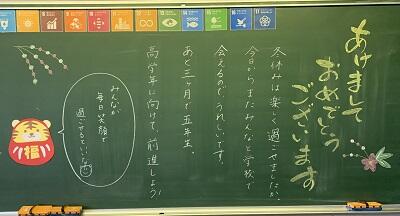 あけまして
おめでとう
ございます
冬休みは楽しく過ごせましたか。
今日からまたみんなと学校で
会えるので、うれしいです。
あと三ヶ月で五年生。
高学年に向けて、前進しよう!
みんなが
毎日笑顔で
過ごせるといいな
福